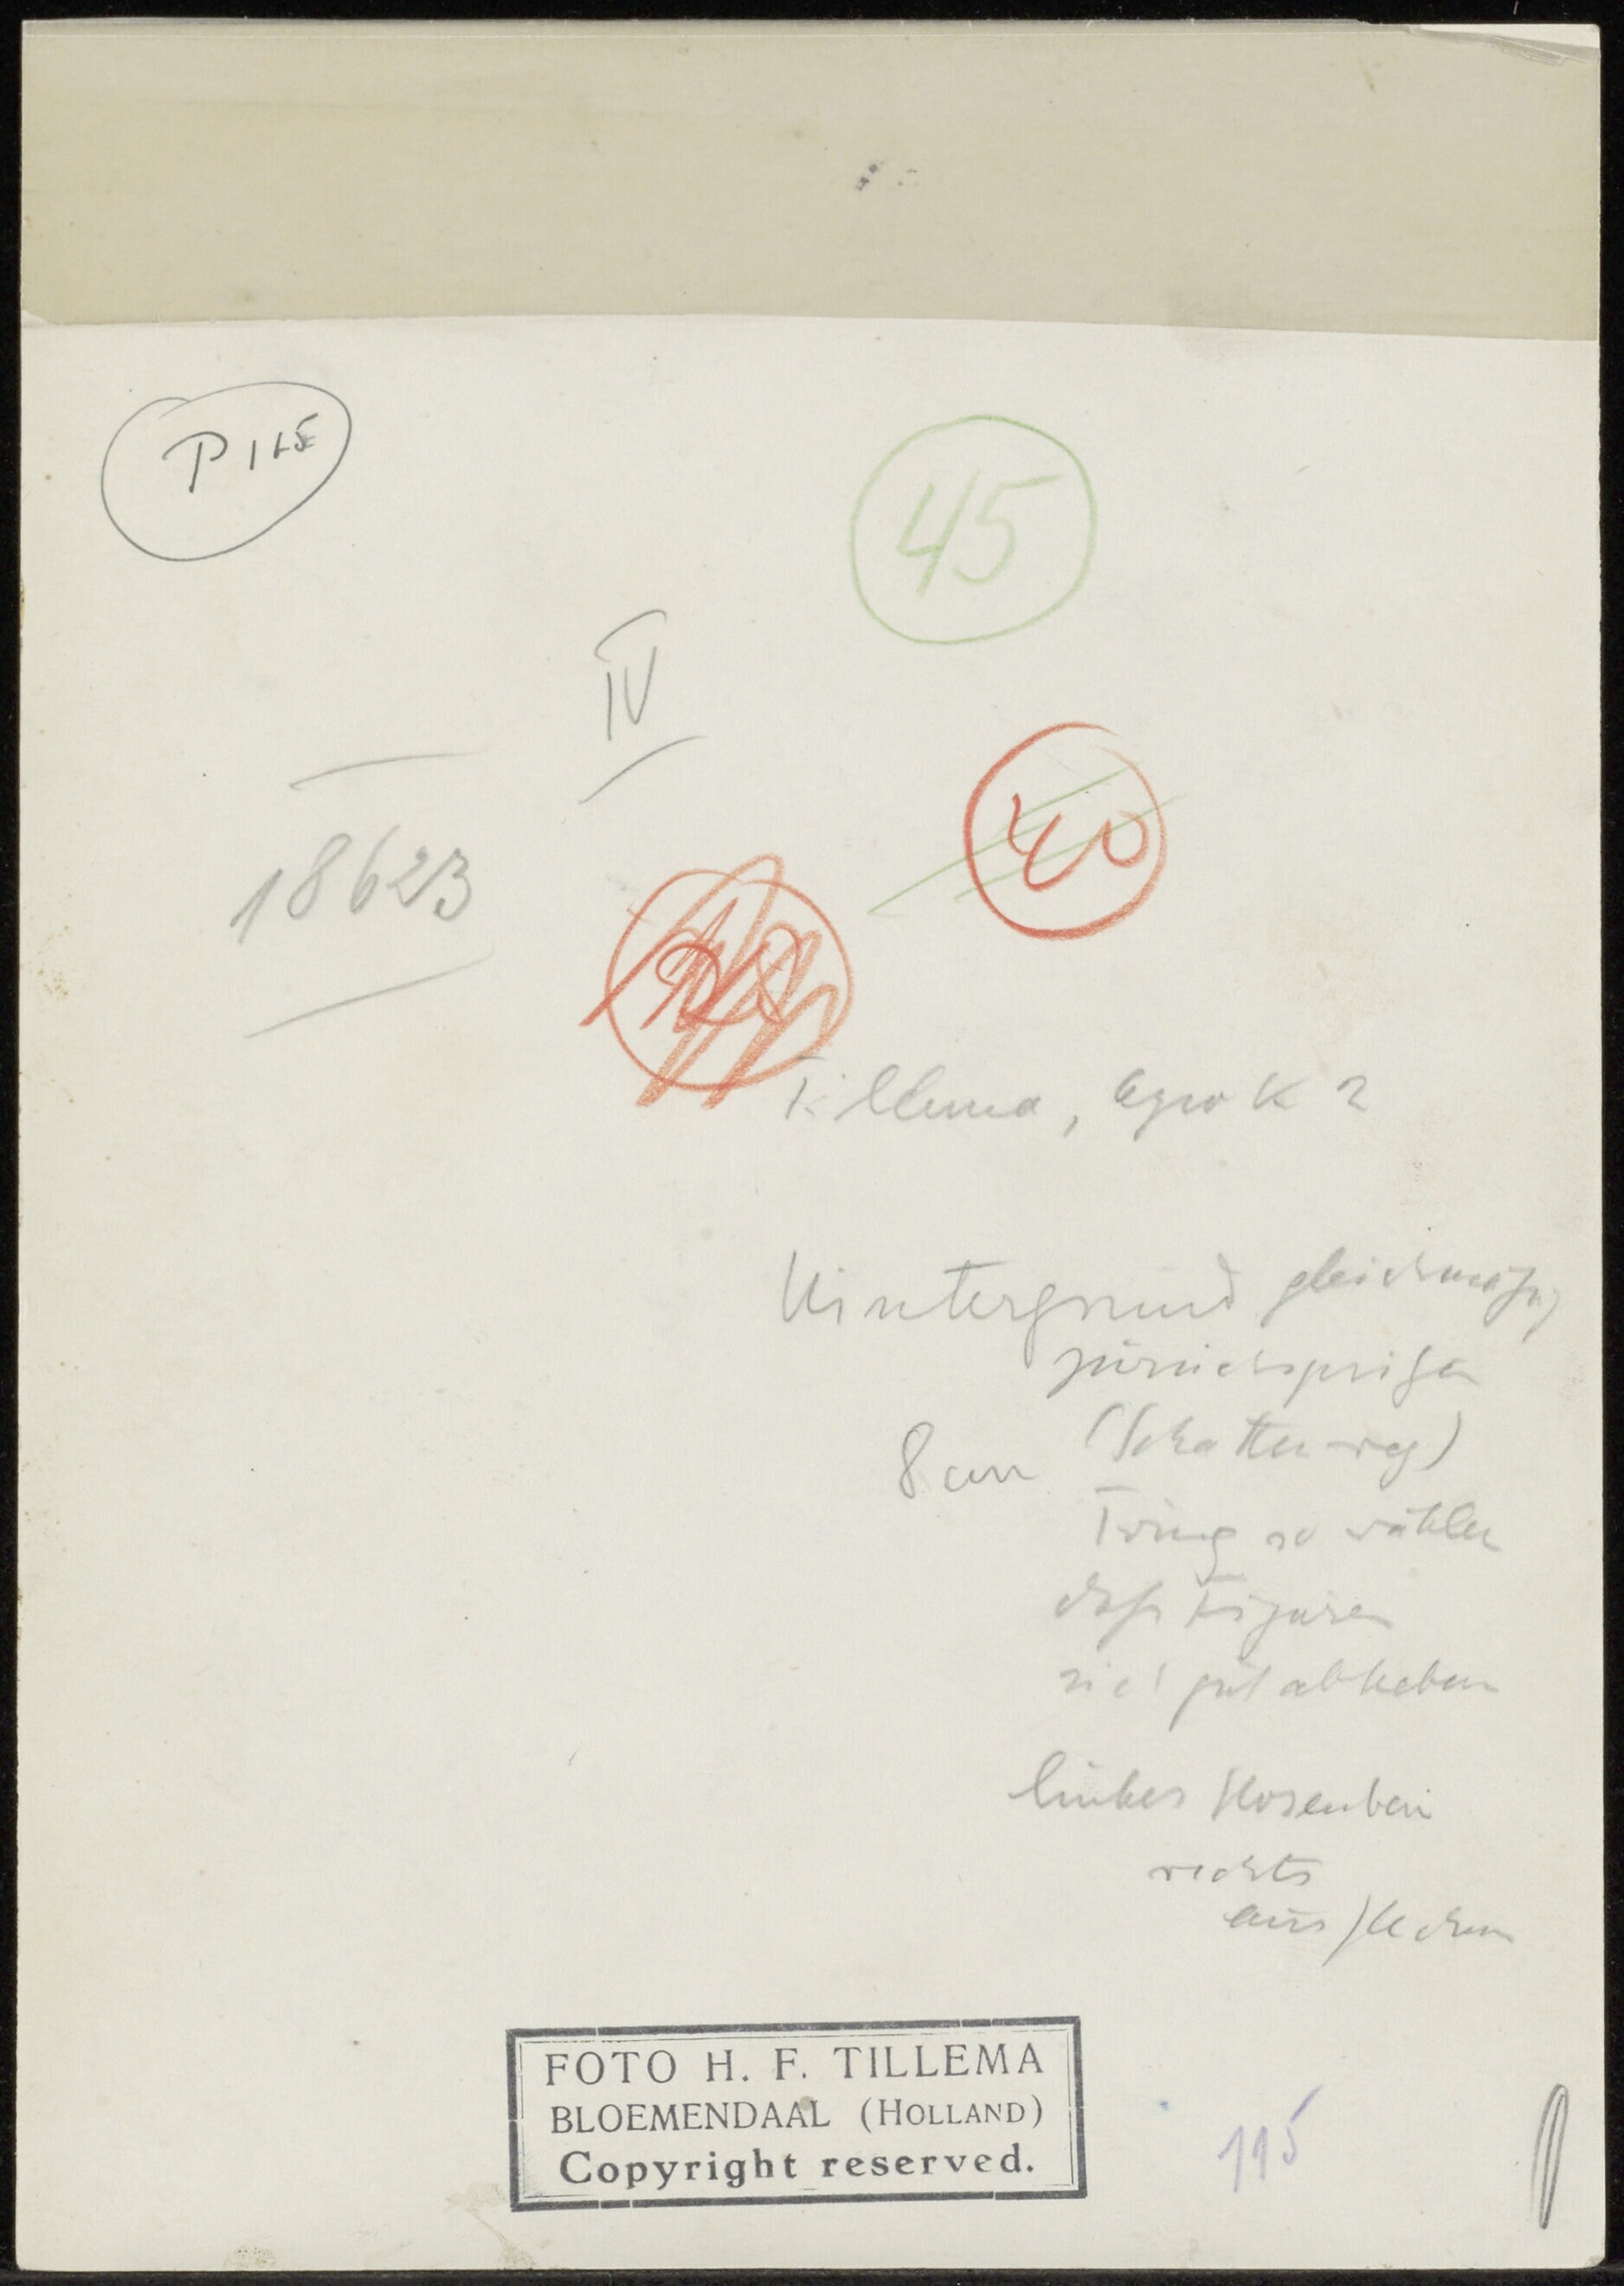 45
IV
40
18623
Tillema, Apo K 2
Hintergrund gleichmäßig
zurückspritzen
(Schatten weg)
8 cm
so wählen
daß Figuren
sich gut abheben
linkes Hosenbein
rechts
FOTO H. F. TILLEMA
BLOEMENDAAL (HOLLAND)
Copyright reserved.
115